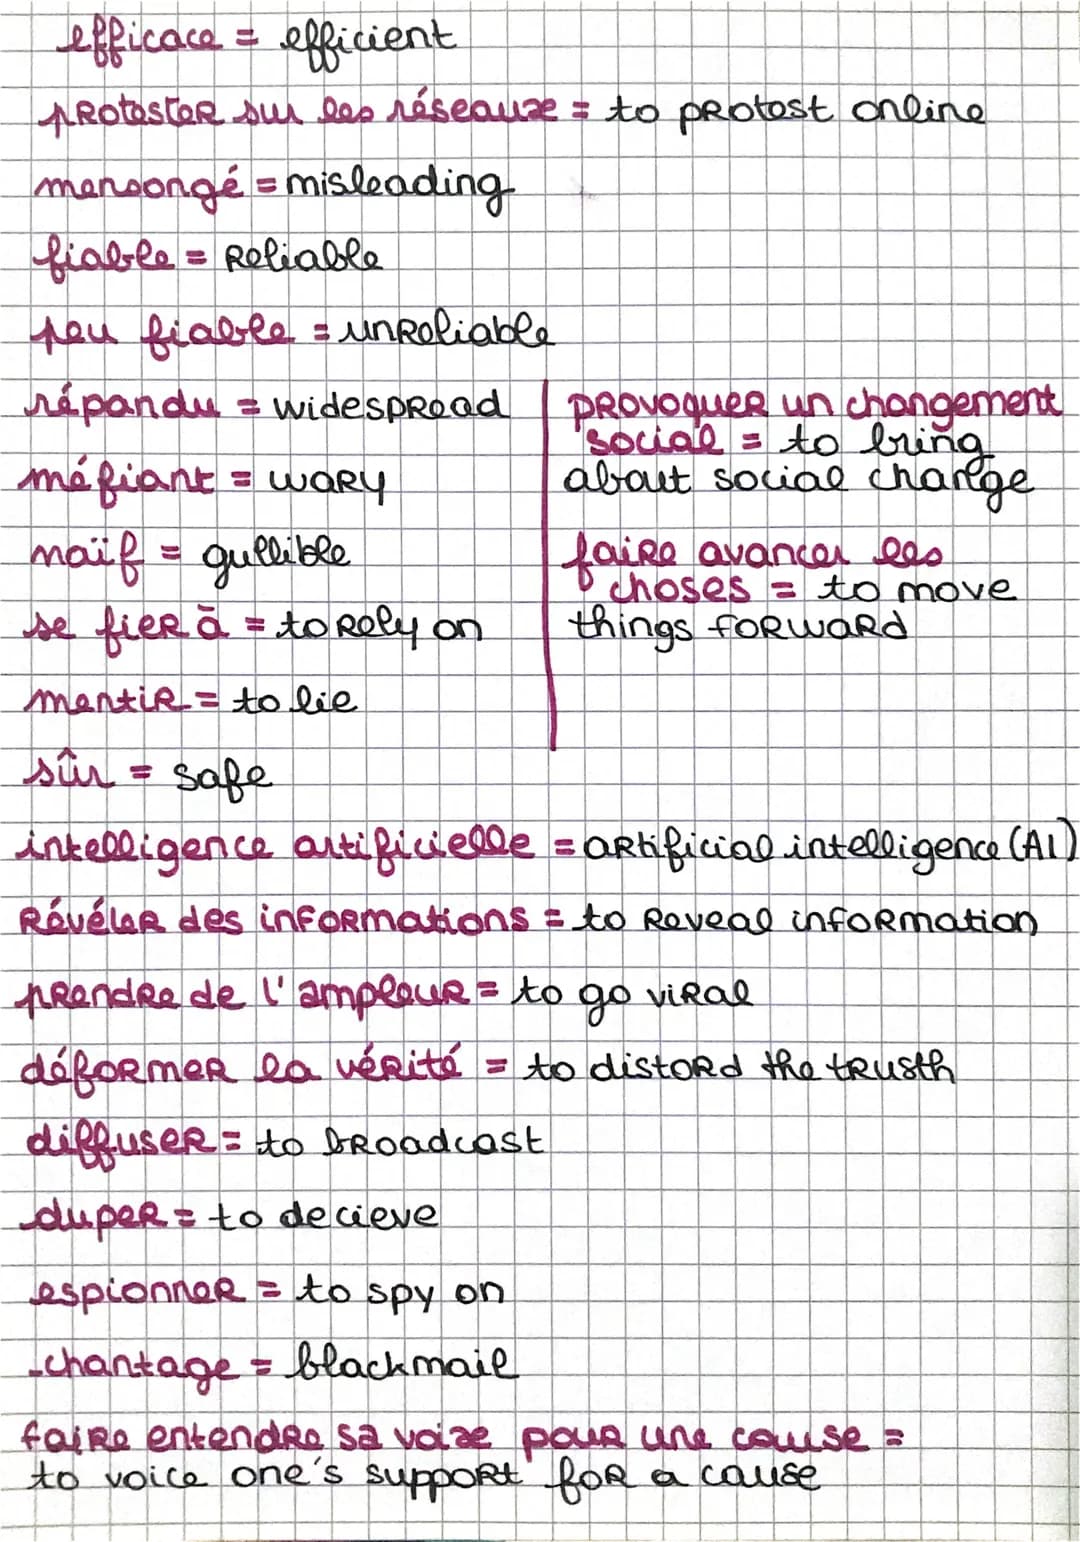 efficace = efficient
protester sur les réseaux = to protest online
mensongé = misleading
fiable = reliable
peu fiable = unreliable
répandu = widespread
méfiant = wary
naïf = gullible
se fier à = to rely on
mentir = to lie
provoquer un changement
social = to bring
about social change
faire avancer les
choses = to move
things forward
sûr = safe
intelligence artificielle = artificial intelligence (AI)
révéler des informations = to reveal information
prendre de l'ampleur = to go viral
déformer la vérité = to distord the trusth
diffuser = to broadcast
duper = to decieve
espionner = to spy on
chantage = blackmail
faire entendre sa voix pour une cause =
to voice one's support for a cause